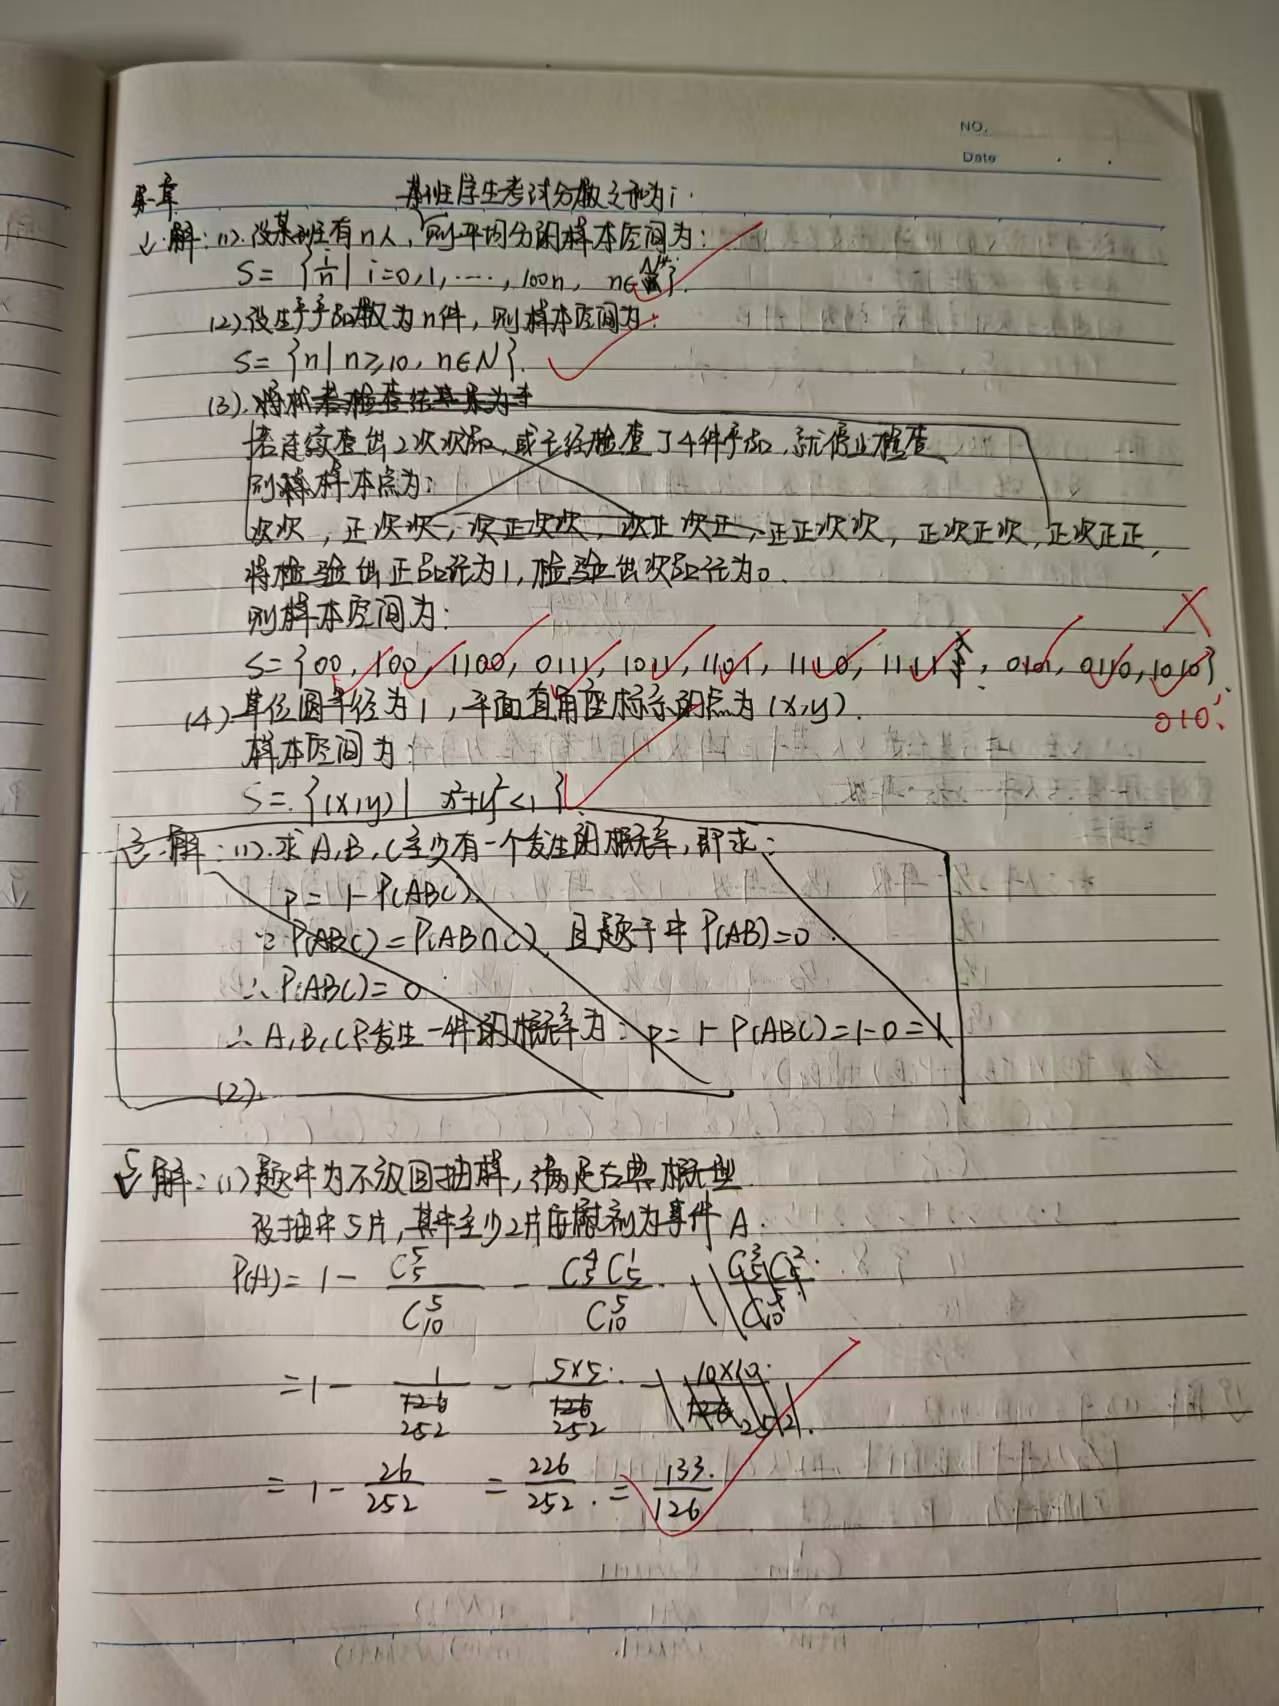 NO.
Date
第一章
某班学生考试分数之和为i.
1. 解:(1).设某班有n人,则平均分的样本空间为:
S = {i/n | i=0,1,……,100n, n∈N*}.
(2)设生产产品数为n件,则样本空间为:
S= {n | n≥10, n∈N}.
(3).
若连续查出2次次品,或已经检查了4件产品,就停止检查
则样本点为:
次次,正次次,次正次次,次正次正,正正次次,正次正次,正次正正,
将检验出正品记为1,检验出次品记为0.
则样本空间为:
S={00, 100, 1100, 0111, 1011, 1101, 1110, 1111, 0101, 0110, 1010}.
010.
(4) 单位圆半径为1,平面直角座标系的点为(x,y).
样本空间为:
S= {(x,y) | x²+y²<1}
3. 解:(1).求A,B,C至少有一个发生的概率,即求:
P = 1- P(ABC).
∵ P(ABC)=P(AB∩C),且题干中P(AB)=0.
∴ P(ABC)= 0
∴ A,B,C只发生一件的概率为: P= 1- P(ABC)=1-0=1
(2).
5. 解:(1)题中为不放回抽样,满足古典概型
设抽中5片,其中至少2片安慰剂为事件A.
P(A)= 1 - C₅⁵/C₁₀⁵ - C₅⁴C₅¹/C₁₀⁵
=1 - 1/252 - 5×5/252
= 1 - 26/252 = 226/252 . = 133/126